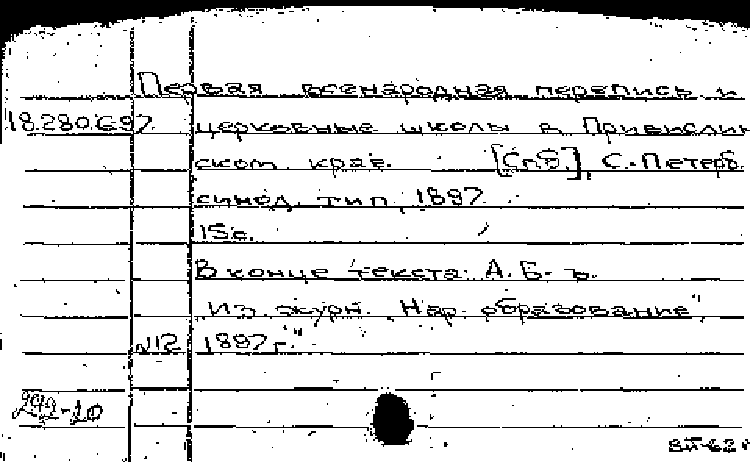 Первая всенародная перепись и
18.280.697 церковные школы в Привислин
ском крае. [Спб.], С.-Петерб.
синод. тип., 1897.
15с.
В конце текста: А. Б-ъ.
"Из журн. "Нар. образование",
№12 1897г."
292-10